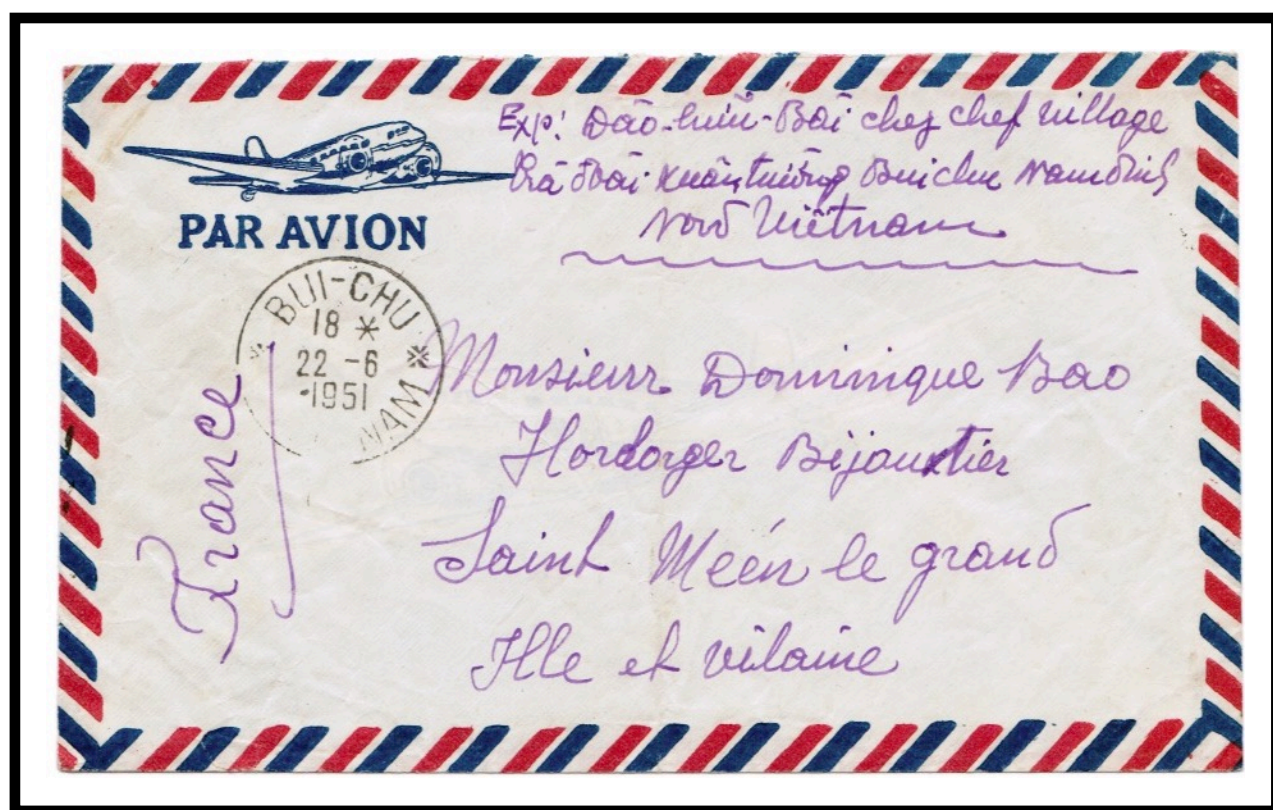 Exp: Đào-hữu-Bài chez chef village
Trà Đoài Xuân trường Buichu Namđinh
Nord Viêtnam
PAR AVION
BUI-CHU
18 *
22 -6
-1951
NAM
France
Monsieur Dominique Bao
Hordorger Bijoutier
Saint Méén le grand
Ille et vilaine